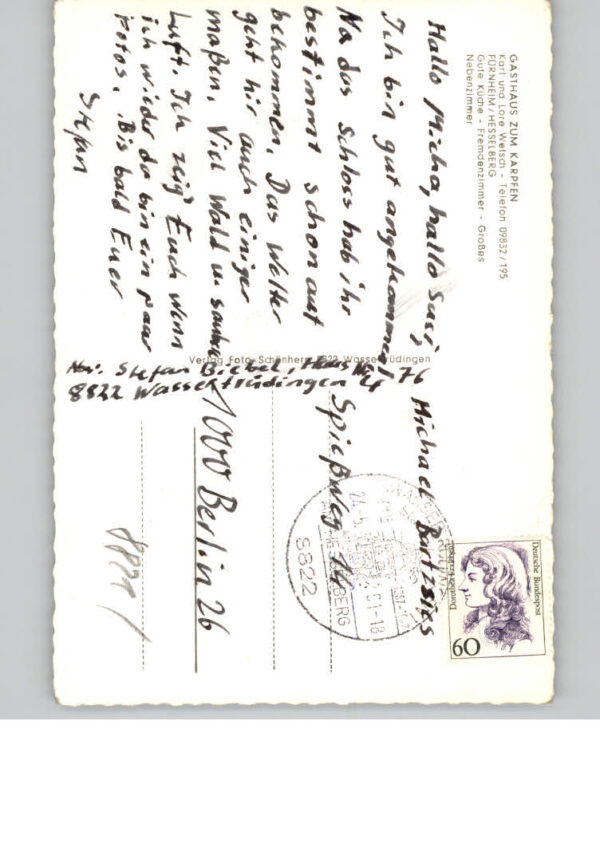 GASTHAUS ZUM KARPFEN
Karl und Lore Wetsch - Telefon 09832/195
FÜRNHEIM/HESSELBERG
Gute Küche - Fremdenzimmer - Großes
Nebenzimmer
Hallo Micha, hallo Susi,
Ich bin gut angekommen.
Na das Schloss hab ihr
bestimmt schon auf
bekommen. Das Wetter
geht hir auch einiger
maßen. Viel Wald u. saubre
Luft. Ich zeig Euch wenn
ich wieder da bin ein paar
Fotos. Bis bald Euer
Stefan
Verlag Foto-Schönherr 8822 Wassertrüdingen
Abs: Stefan Biebel, Haus Nr. 76
8822 Wassertrüdingen 4
Michael Bartzsies
Spießweg
1000 Berlin 26
Deutsche Bundespost
60
8822